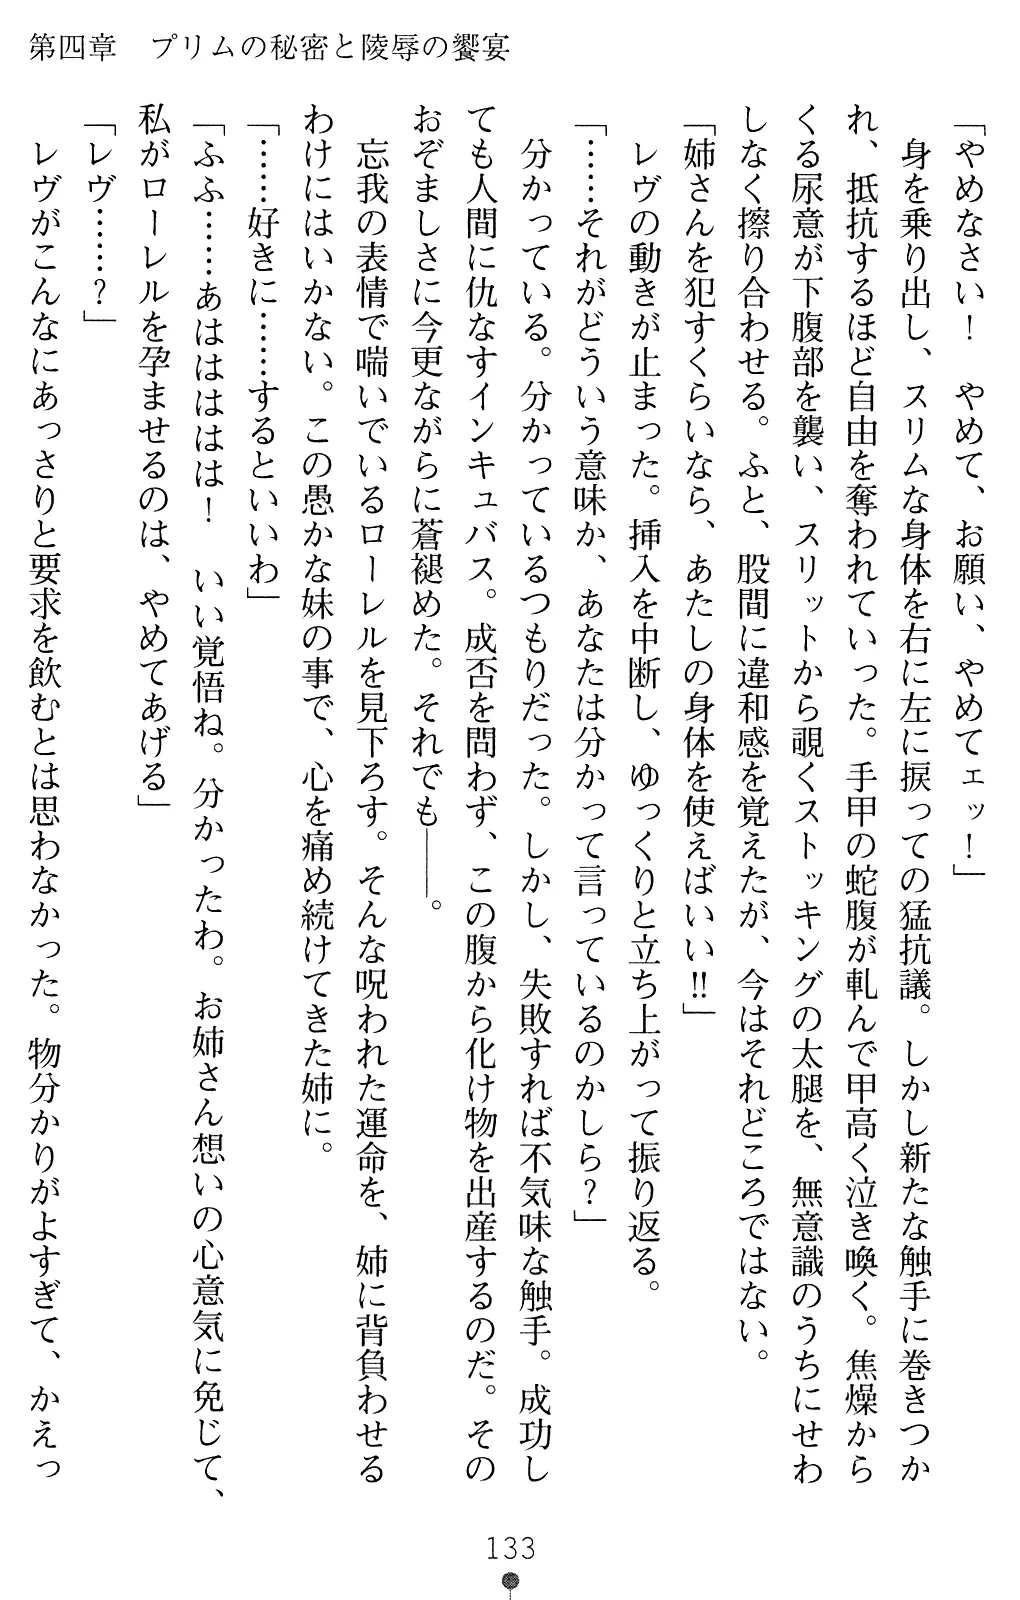 第四章　プリムの秘密と陵辱の饗宴
「やめなさい！　やめて、お願い、やめてェッ！」
　身を乗り出し、スリムな身体を右に左に捩っての猛抗議。しかし新たな触手に巻きつか
れ、抵抗するほど自由を奪われていった。手甲の蛇腹が軋んで甲高く泣き喚く。焦燥から
くる尿意が下腹部を襲い、スリットから覗くストッキングの太腿を、無意識のうちにせわ
しなく擦り合わせる。ふと、股間に違和感を覚えたが、今はそれどころではない。
「姉さんを犯すくらいなら、あたしの身体を使えばいい!!」
　レヴの動きが止まった。挿入を中断し、ゆっくりと立ち上がって振り返る。
「……それがどういう意味か、あなたは分かって言っているのかしら？」
　分かっている。分かっているつもりだった。しかし、失敗すれば不気味な触手。成功し
ても人間に仇なすインキュバス。成否を問わず、この腹から化け物を出産するのだ。その
おぞましさに今更ながらに蒼褪めた。それでも――。
　忘我の表情で喘いでいるローレルを見下ろす。そんな呪われた運命を、姉に背負わせる
わけにはいかない。この愚かな妹の事で、心を痛め続けてきた姉に。
「……好きに……するといいわ」
「ふふ……あはははは！　いい覚悟ね。分かったわ。お姉さん想いの心意気に免じて、
私がローレルを孕ませるのは、やめてあげる」
「レヴ……？」
　レヴがこんなにあっさりと要求を飲むとは思わなかった。物分かりがよすぎて、かえっ
133